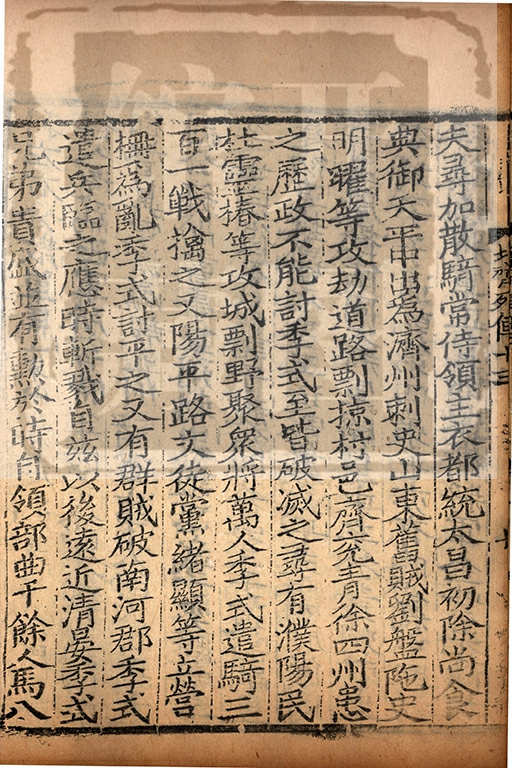 夫尋加散騎常侍領主衣都統太昌初除尚食
典御天平中出爲濟州刺史山東舊賊劉盤陁史
明曜等攻劫道路剽掠村邑齊兖青徐四州患
之歷政不能討季式至皆破滅之尋有濮陽民
杜靈椿等攻城剽野聚衆將萬人季式遣騎三
百一戰擒之又陽平路文徒黨緒顯等立營
柵爲亂季式討平之又有群賊破南河郡季式
遣兵臨之應時斬戮自兹以後遠近清晏季式
兄弟貴盛並有勲於時自領部曲千餘人馬八